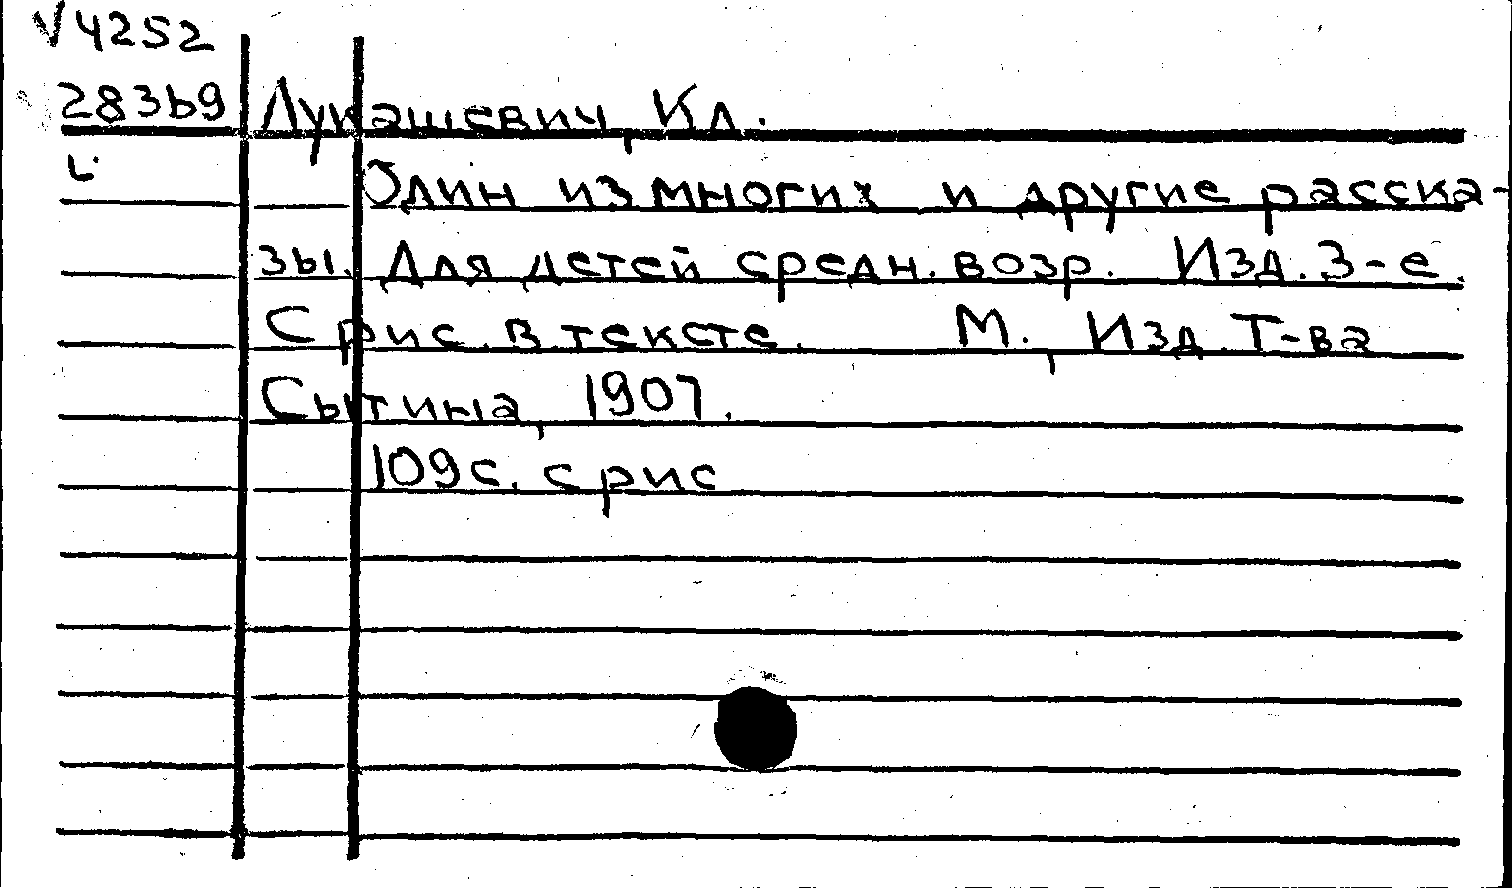 V4252
283b9 Лукашевич, Кл.
L.
Один из многих и другие расска-
зы. Для детей средн. возр. Изд. 3-е.
С рис. в тексте. М., Изд. Т-ва
Сытина, 1907.
109с. с рис